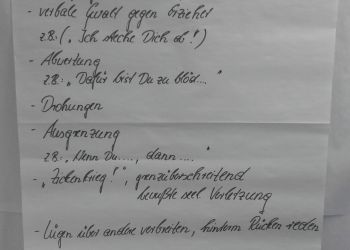 - verbale Gewalt gegen Erzieher
z.B. („Ich steche Dich ab!")
- Abwertung
z.B. „Dafür bist Du zu blöd..."
- Drohungen
- Ausgrenzung
z.B. „Wenn Du...., dann ....."
- „Zickenkrieg!", grenzüberschreitend
bewußte seel. Verletzung
- Lügen über andere verbreiten, hinterm Rücken reden